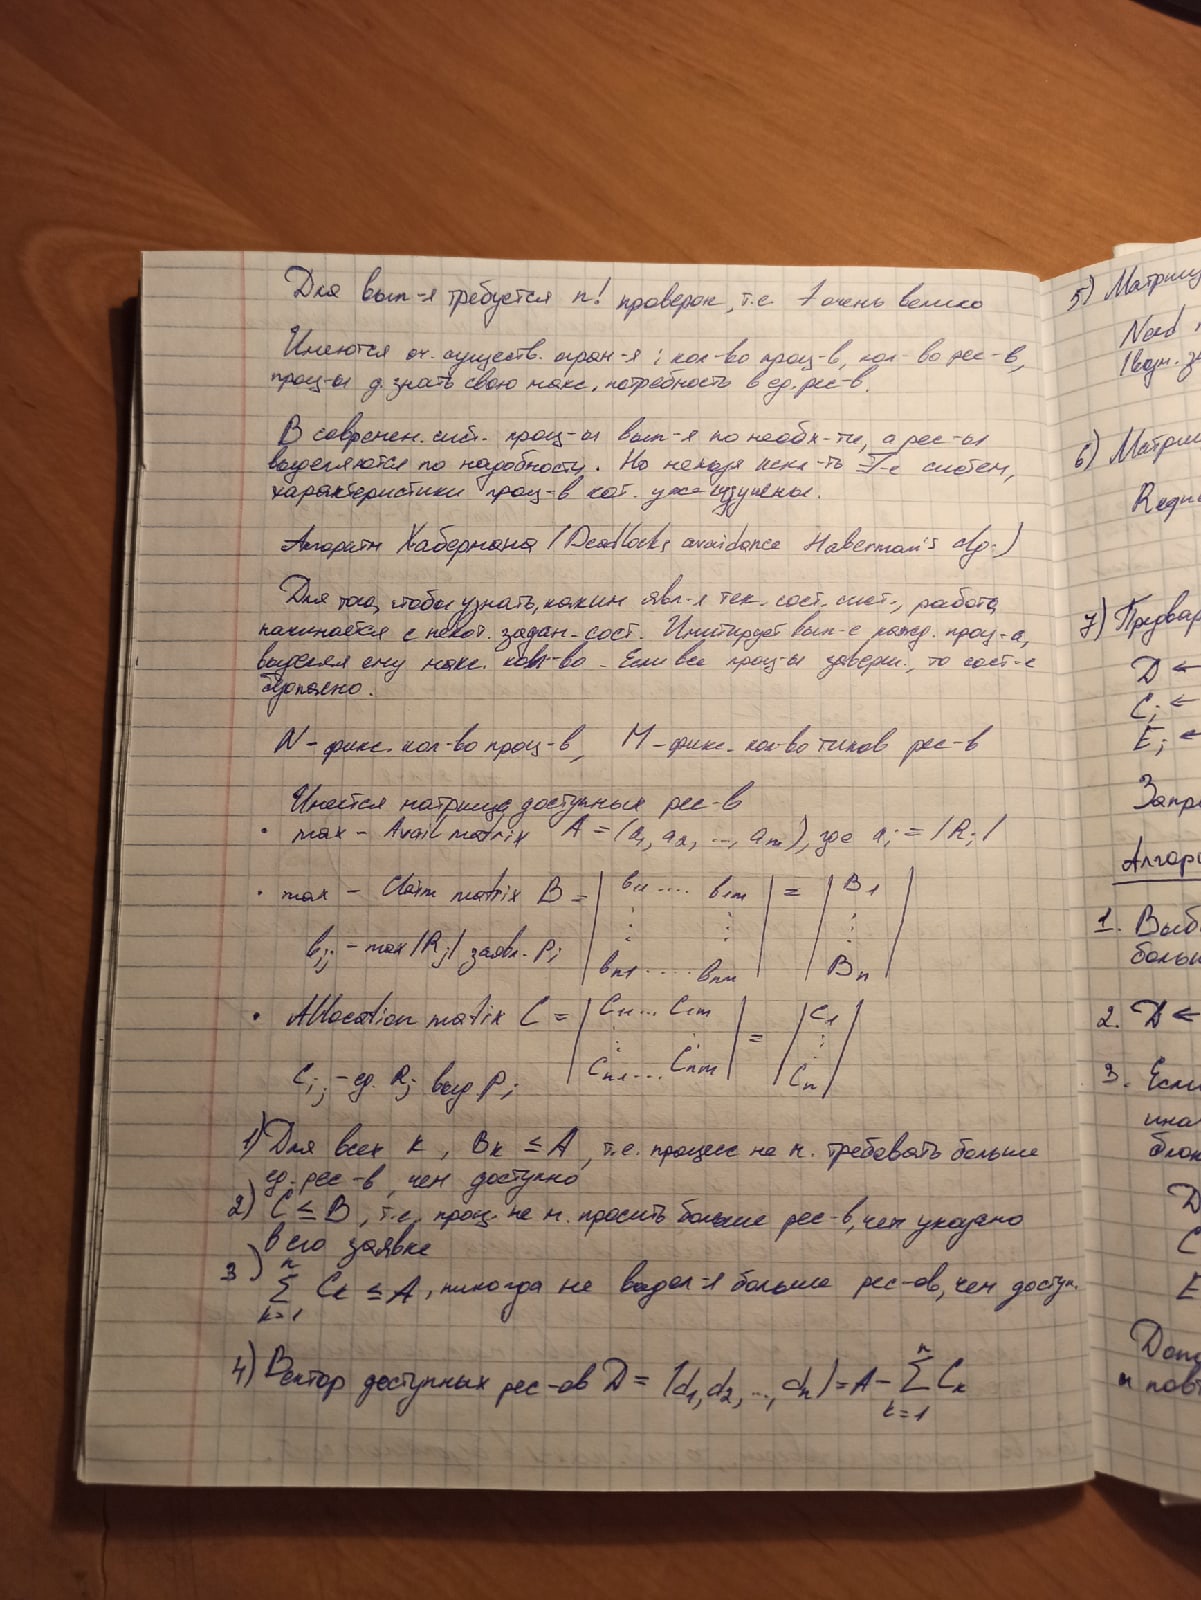 Для вып-я требуется n! проверок, т.е. t очень велико
Имеются оч. существ. огран-я: кол-во проц-в, кол-во рес-в,
проц-ы д. знать свою макс. потребность в ед. рес-в.
В современ. сист. проц-ы вып-я по необх-ти, а рес-ы
выделяются по надобности. Но нельзя искл-ть сист,
характеристики проц-в кот. уже изучены.
Алгоритм Хабермана (Deadlocks avoidance Haberman's alg.)
Для того, чтобы узнать, каким явл-я тек. сост. сист., работа
начинается с некот. задан. сост. Имитирует вып-е кажд. проц-а,
выделяя ему макс. кол-во. Если все проц-ы заверш., то сост-е
безопасно.
N - фикс. кол-во проц-в, M - фикс. кол-во типов рес-в
Имеется матрица доступных рес-в
• max - Avail matrix A = (a₁, a₂, ..., aₘ), где aⱼ = |Rⱼ|
• max - Claim matrix B = | b₁₁ .... b₁ₘ | = | B₁ |
⋮ ⋮ ⋮
bᵢⱼ - max |Rⱼ| заявл. Pᵢ
bₙ₁ ..... bₙₘ Bₙ
• Allocation matrix C = | C₁₁ ... C₁ₘ | = | C₁ |
⋮ ⋮ ⋮
Cᵢⱼ - ед. Rⱼ выд Pᵢ Cₙ₁ .... Cₙₘ Cₙ
1) Для всех k, Bₖ ≤ A, т.е. процесс не м. требовать больше
ед. рес-в, чем доступно
2) C ≤ B, т.е. проц. не м. просить больше рес-в, чем указано
в его заявке
3) n
∑ Cₖ ≤ A, никогда не выдел-я больше рес-ов, чем доступ.
k=1
4) Вектор доступных рес-ов D = (d₁, d₂, ..., dₙ) = A - ∑ Cₖ
n
k=1
5) Матриц
Need
6) Матри
7) Предвар
D ←
Cᵢ ←
Eᵢ ←
Запр
Алгор
1. Выб
больш
2. D ←
3. Если
ина
блок
D
C
E
Доп
и повт